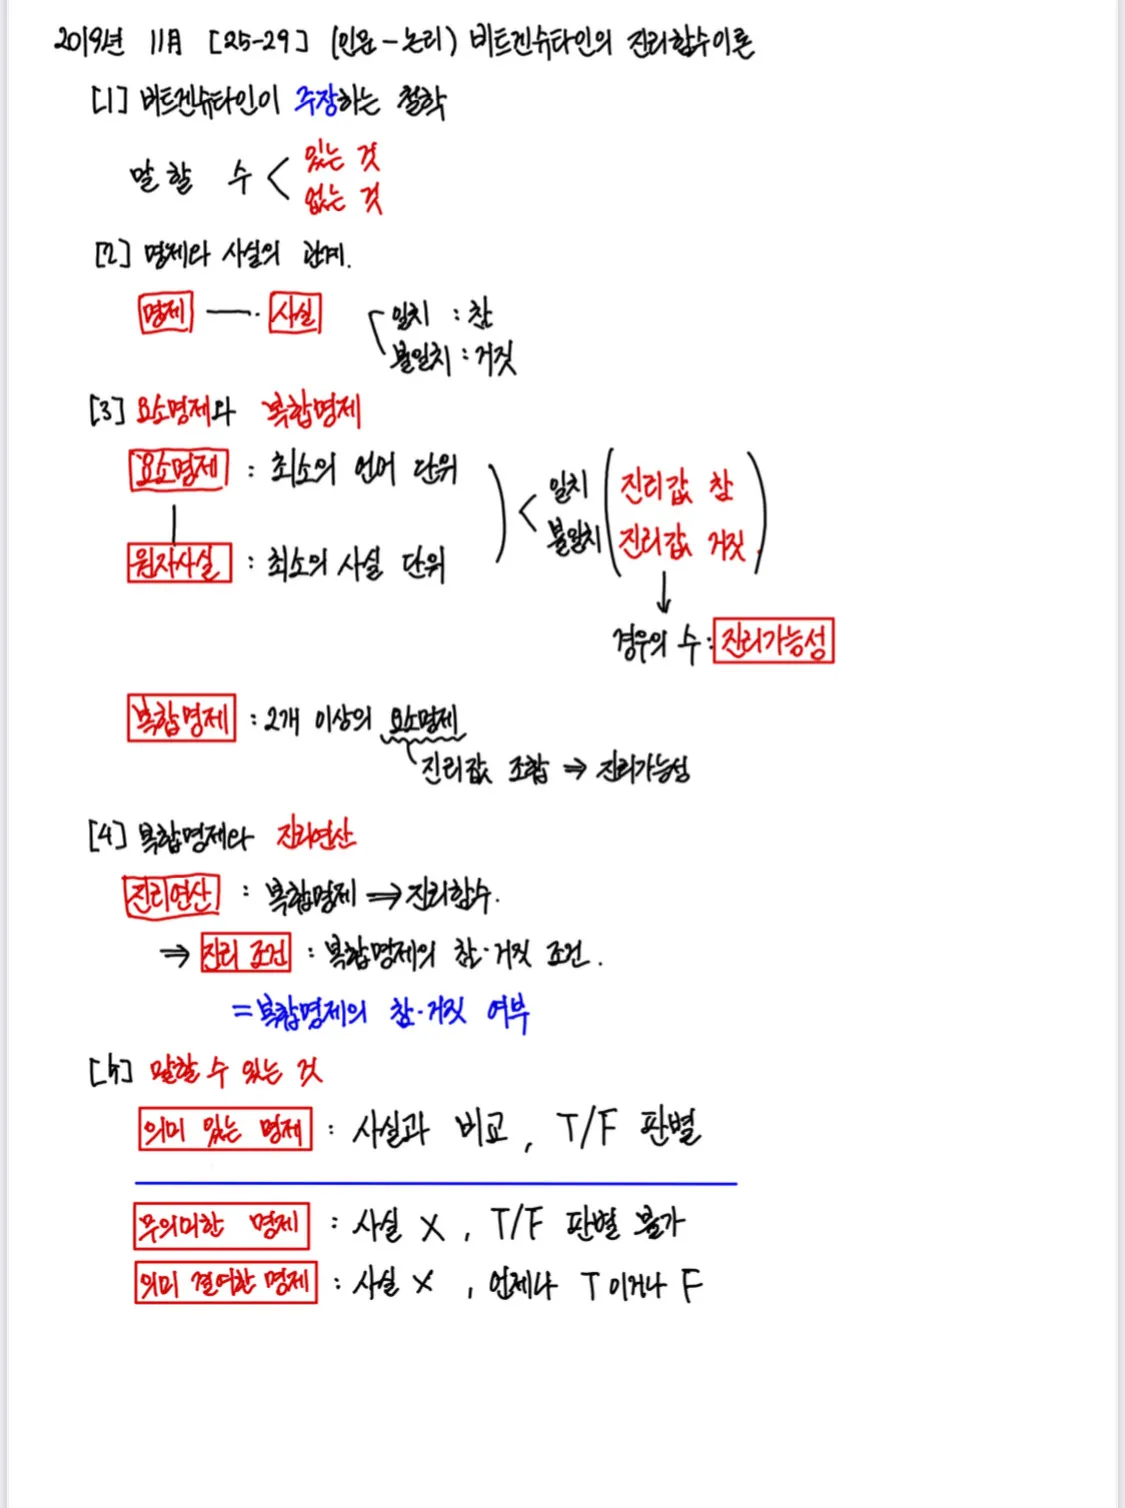 2019년 11月 [25-29] (인문-논리) 비트겐슈타인의 진리함수이론
[1] 비트겐슈타인이 주장하는 철학
말할 수 < 있는 것
없는 것
[2] 명제와 사실의 관계.
명제 — 사실 일치 : 참
불일치 : 거짓
[3] 요소명제와 복합명제
요소명제 : 최소의 언어 단위
일치 진리값 참
불일치 진리값 거짓
원자사실 : 최소의 사실 단위
↓
경우의 수 : 진리가능성
복합명제 : 2개 이상의 요소명제
진리값 조합 ⇒ 진리가능성
[4] 복합명제와 진리연산
진리연산 : 복합명제 ⇒ 진리함수.
⇒ 진리 조건 : 복합명제의 참·거짓 조건.
= 복합명제의 참·거짓 여부
[5] 말할 수 있는 것
의미 있는 명제 : 사실과 비교, T/F 판별
무의미한 명제 : 사실 X, T/F 판별 불가
의미 결여한 명제 : 사실 X, 언제나 T이거나 F